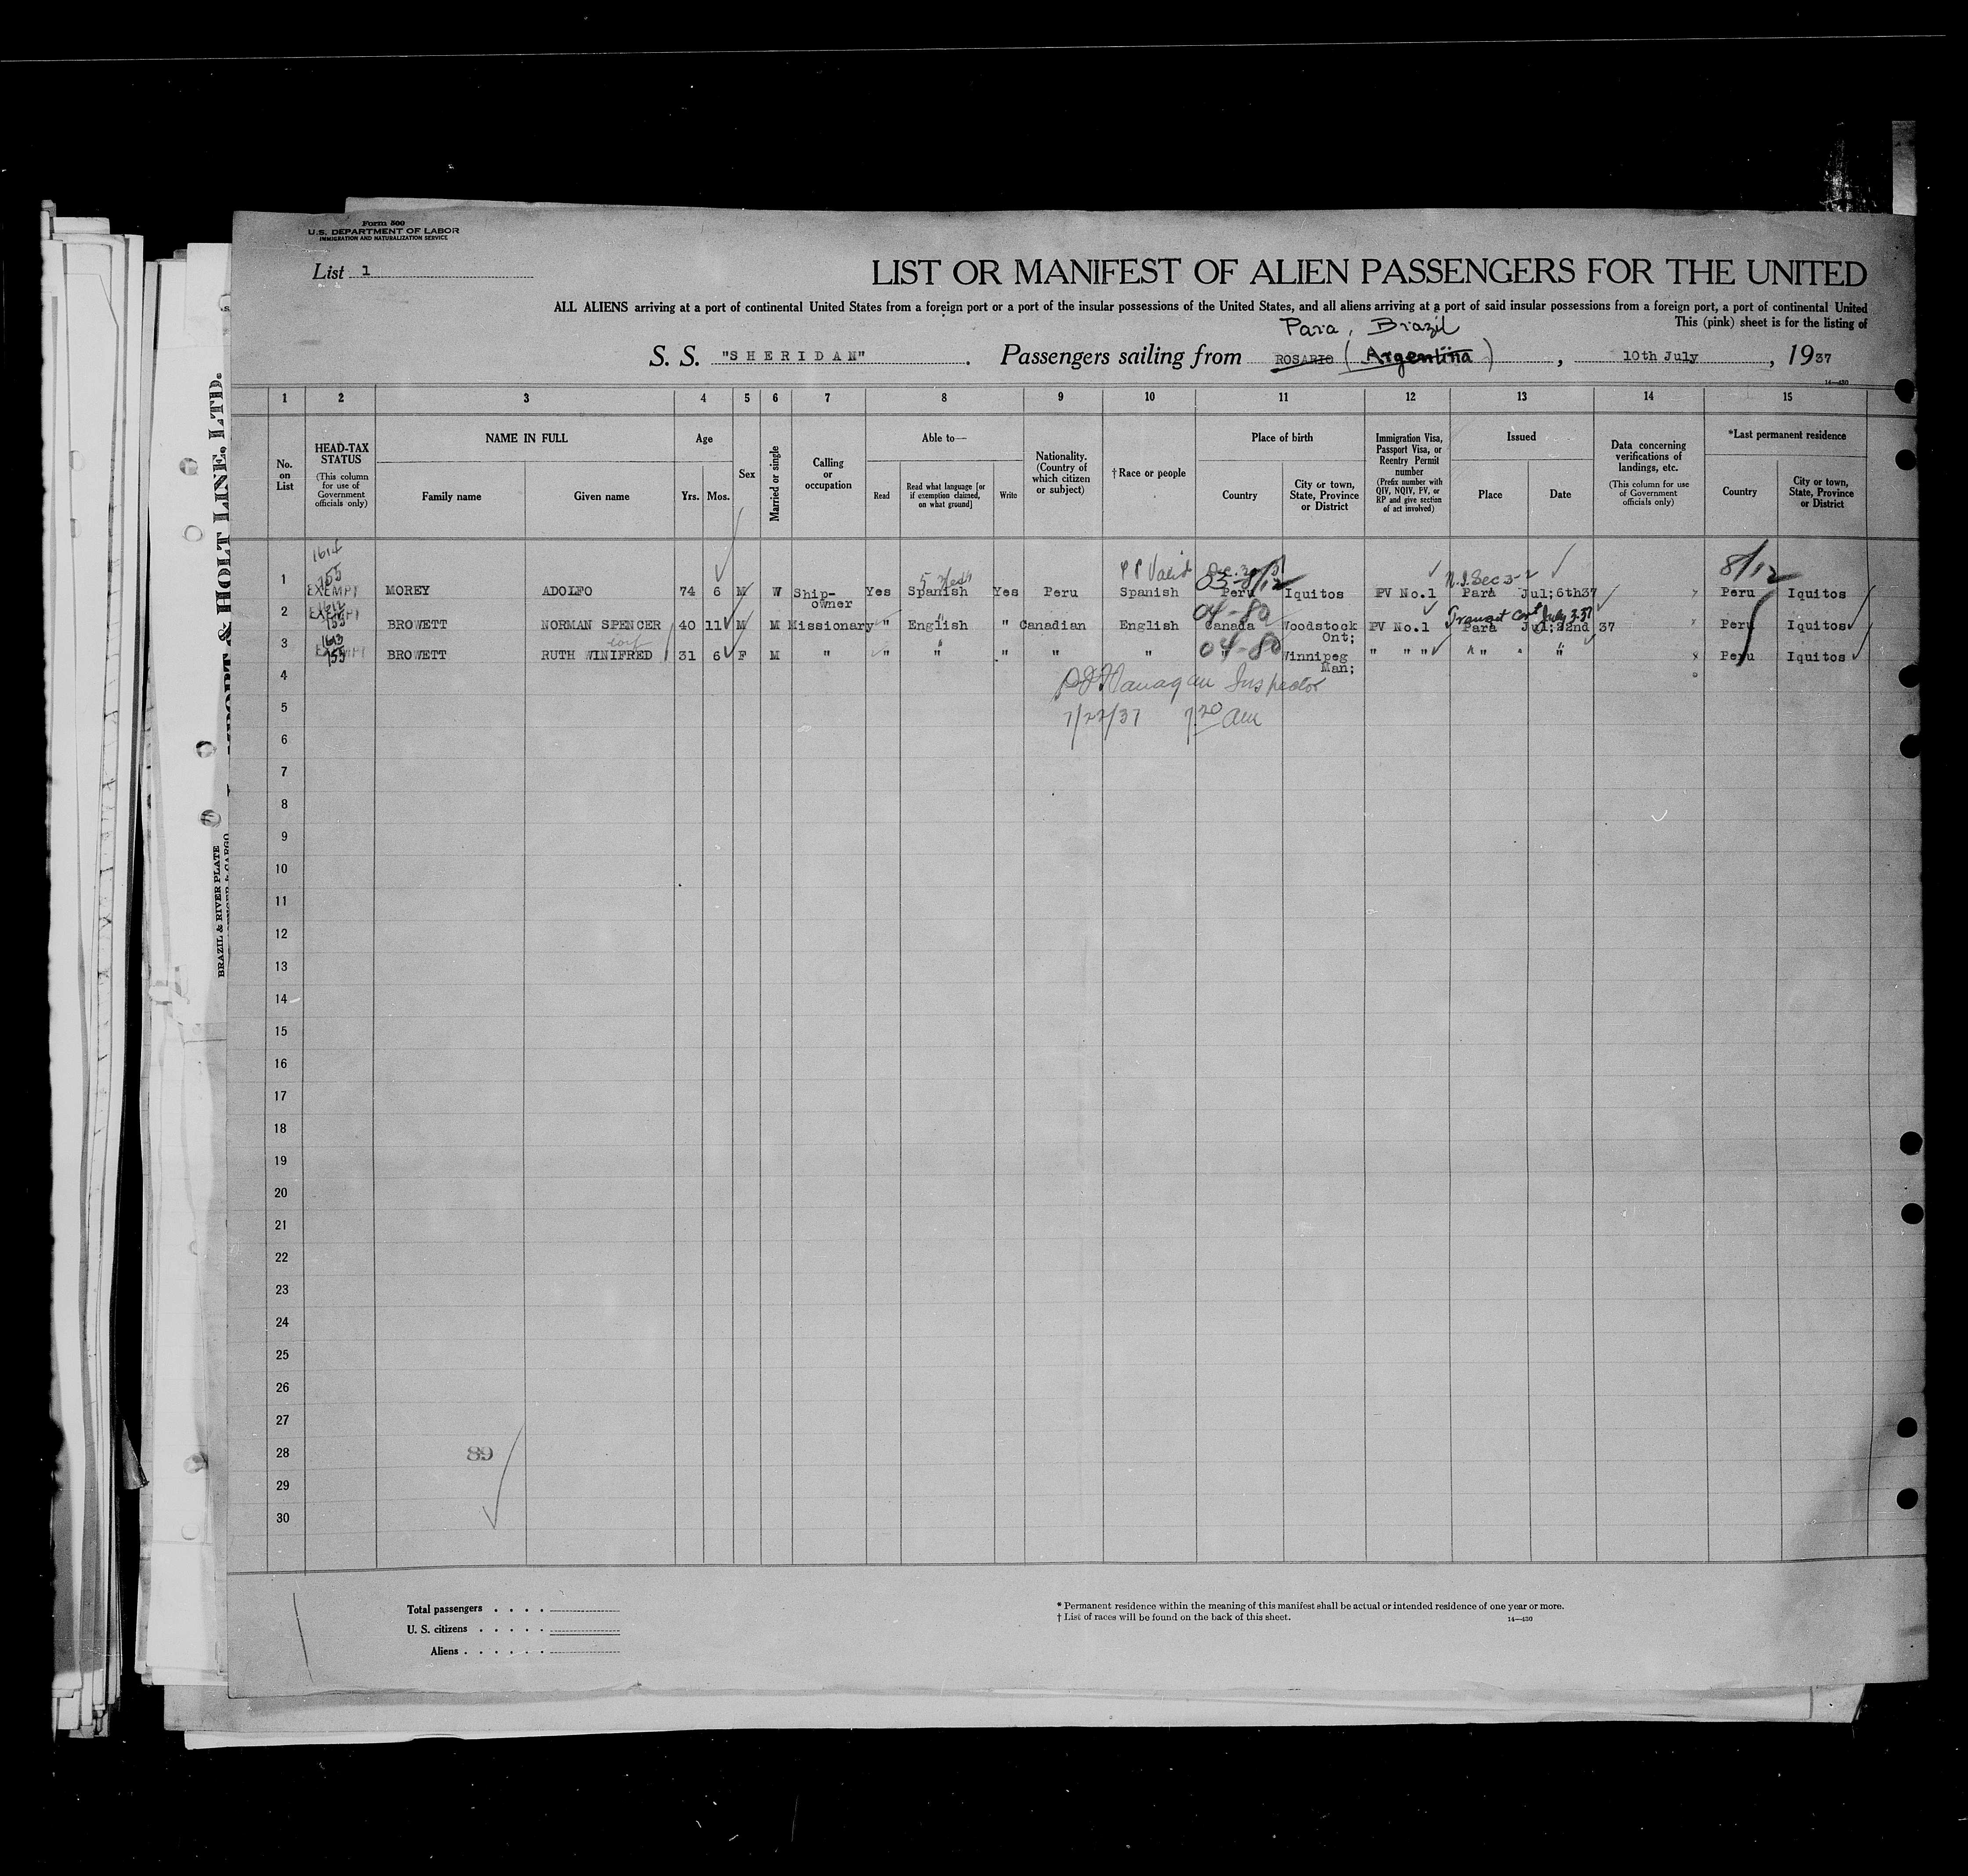 Form 500
U.S. DEPARTMENT OF LABOR
IMMIGRATION AND NATURALIZATION SERVICE
List 1
LIST OR MANIFEST OF ALIEN PASSENGERS FOR THE UNITED
ALL ALIENS arriving at a port of continental United States from a foreign port or a port of the insular possessions of the United States, and all aliens arriving at a port of said insular possessions from a foreign port, a port of continental United
This (pink) sheet is for the listing of
Para, Brazil
S. S. "SHERIDAN". Passengers sailing from ROSARIO (Argentina), 10th July, 1937
14—430
1 2 3 4 5 6 7 8 9 10 11 12 13 14 15
No. on List
HEAD-TAX STATUS
(This column for use of Government officials only)
NAME IN FULL
Family name
Given name
Age
Yrs.
Mos.
Sex
Married or single
Calling or occupation
Able to—
Read
Read what language [or if exemption claimed, on what ground]
Write
Nationality. (Country of which citizen or subject)
†Race or people
Place of birth
Country
City or town, State, Province or District
Immigration Visa, Passport Visa, or Reentry Permit number
(Prefix number with QIV, NQIV, PV, or RP and give section of act involved)
Issued
Place
Date
Data concerning verifications of landings, etc.
(This column for use of Government officials only)
*Last permanent residence
Country
City or town, State, Province or District
1614
155
PP Valid
N.I. Sec 3-2
03-8/12
8/12
1 EXEMPT MOREY ADOLFO 74 6 M W Ship-owner Yes Spanish Yes Peru Spanish Peru Iquitos PV No.1 Para Jul;6th37 Peru Iquitos
1612
155
04-80
Transit Cert July 3-37
2 EXEMPT BROWETT NORMAN SPENCER 40 11 M M Missionary " English " Canadian English Canada Woodstook Ont; PV No.1 Para Jul;22nd 37 Peru Iquitos
1613
155
04-80
3 EXEMPT BROWETT RUTH WINIFRED 31 6 F M " " " " " " " Winnipeg Man; " " " " " " Peru Iquitos
4
Flanagan Inspector
5
7/22/37 7 20 am
6
7
8
9
10
11
12
13
14
15
16
17
18
19
20
21
22
23
24
25
26
27
28
89
29
30
Total passengers
U. S. citizens
Aliens
* Permanent residence within the meaning of this manifest shall be actual or intended residence of one year or more.
† List of races will be found on the back of this sheet.
14—430
& HOLT LINE, LTD.
BRAZIL & RIVER PLATE